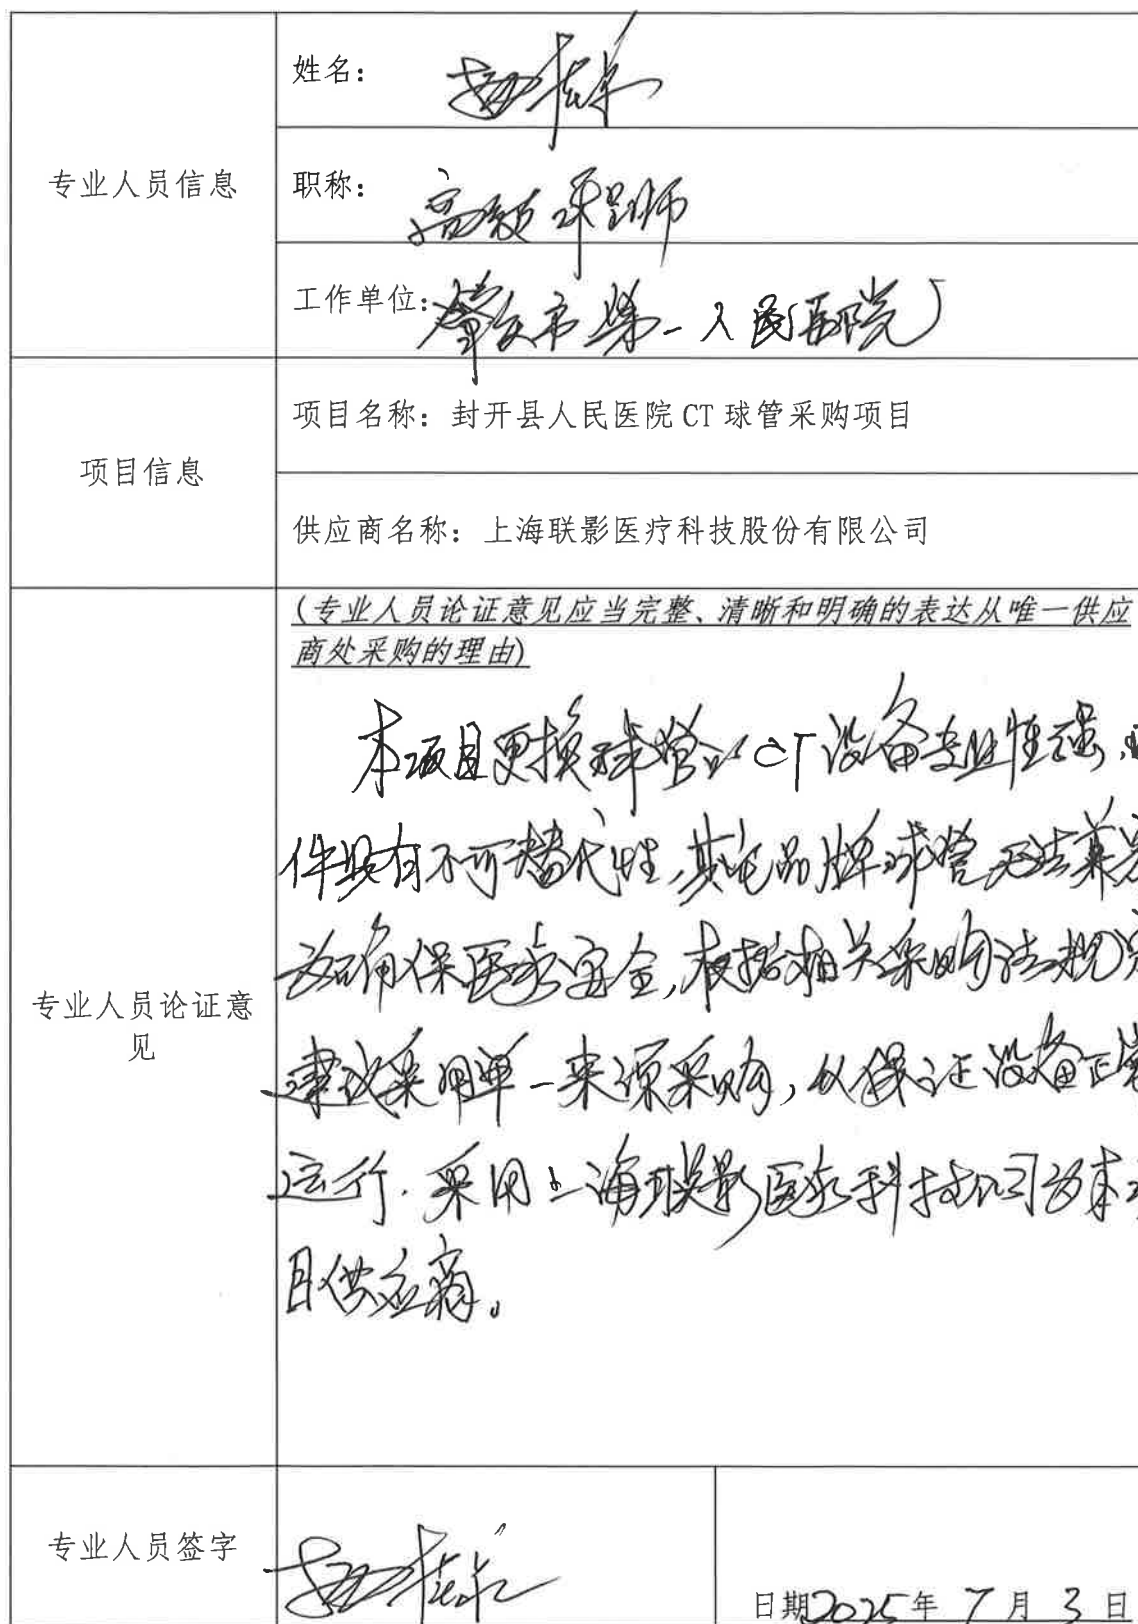 专业人员信息
姓名：
职称：高级工程师
工作单位：肇庆市第一人民医院
项目信息
项目名称：封开县人民医院 CT 球管采购项目
供应商名称：上海联影医疗科技股份有限公司
专业人员论证意见
(专业人员论证意见应当完整、清晰和明确的表达从唯一供应
商处采购的理由)
本项目更换球管 CT设备专业性强，
件具有不可替代性，其它品牌球管无法兼容
为确保医疗安全，根据相关采购法规
建议采用单一来源采购，以保证设备正常
运行。采用上海联影医疗科技公司为本
目供应商。
专业人员签字
日期2025年 7 月 3 日